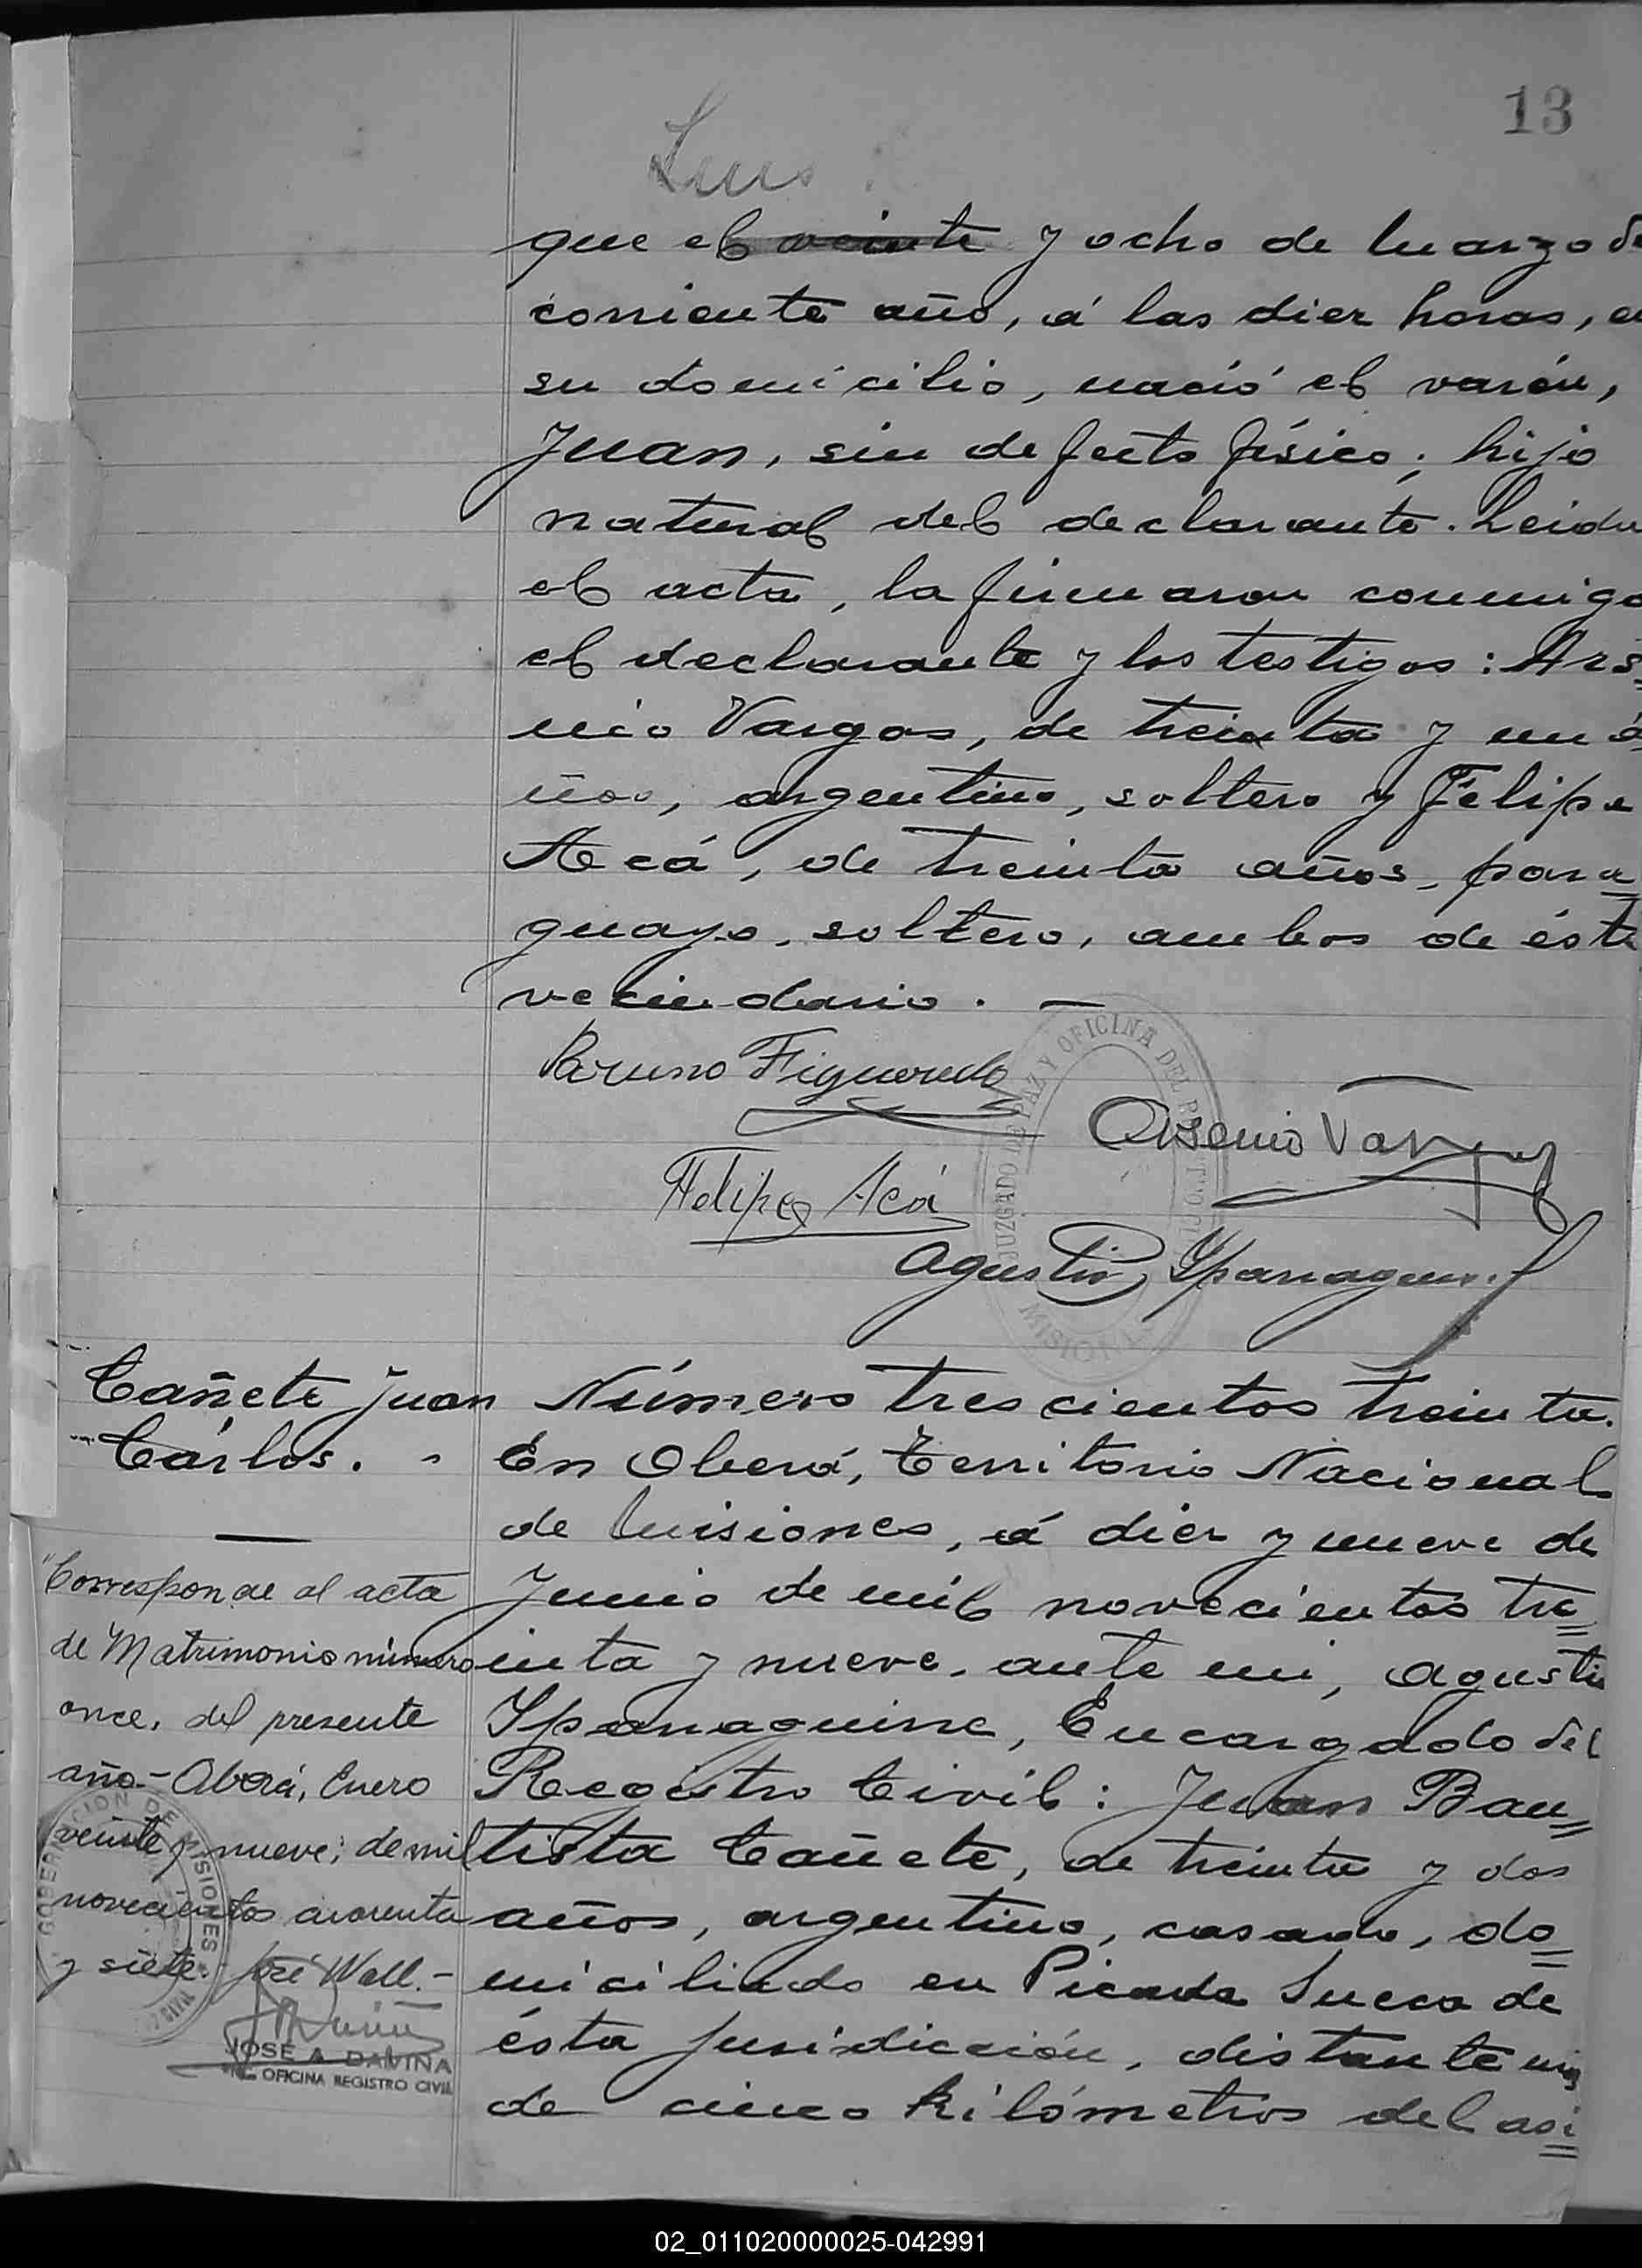 13
Luis
que el veinte y ocho de Marzo de
corriente año, á las diez horas, en
su domicilio, nació el varón,
Juan, sin defecto físico; hijo
natural del declarante. Leida
el acta, la firmaron conmigo
el declarante y los testigos: Ars=
enio Vargas, de treinta y un a=
ños, argentino, soltero y Felipe
Acá, de treinta años, para=
guayo, soltero, ambos de éste
vecindario. —
Bruno Figueredo
Arsenio Vargas
Felipe Acá
Agustin Yparraguirre
JUZGADO DE PAZ Y OFICINA DEL
MISIONES
Cañete Juan
Cárlos.
Número trescientos treinta.
En Oberá, Territorio Nacional
de Misiones, á diez y nueve de
Junio de mil novecientos tre=
inta y nueve, ante mi, Agustin
Yparraguirre, Encargado del
Registro Civil: Juan Bau=
tista Cañete, de treinta y dos
años, argentino, casado, do=
miciliado en Picada Sueca de
ésta jurisdicción, distante más
de cinco kilómetros del asi=
"Corresponde al acta
de Matrimonio número
once, del presente
año.- Oberá, Enero
veinte y nueve, de mil
novecientos cuarenta
y siete. José Wall.-
GOBERNACION DE MISIONES
JOSÉ A. DAVIÑA
OFICINA REGISTRO CIVIL
02_011020000025-042991